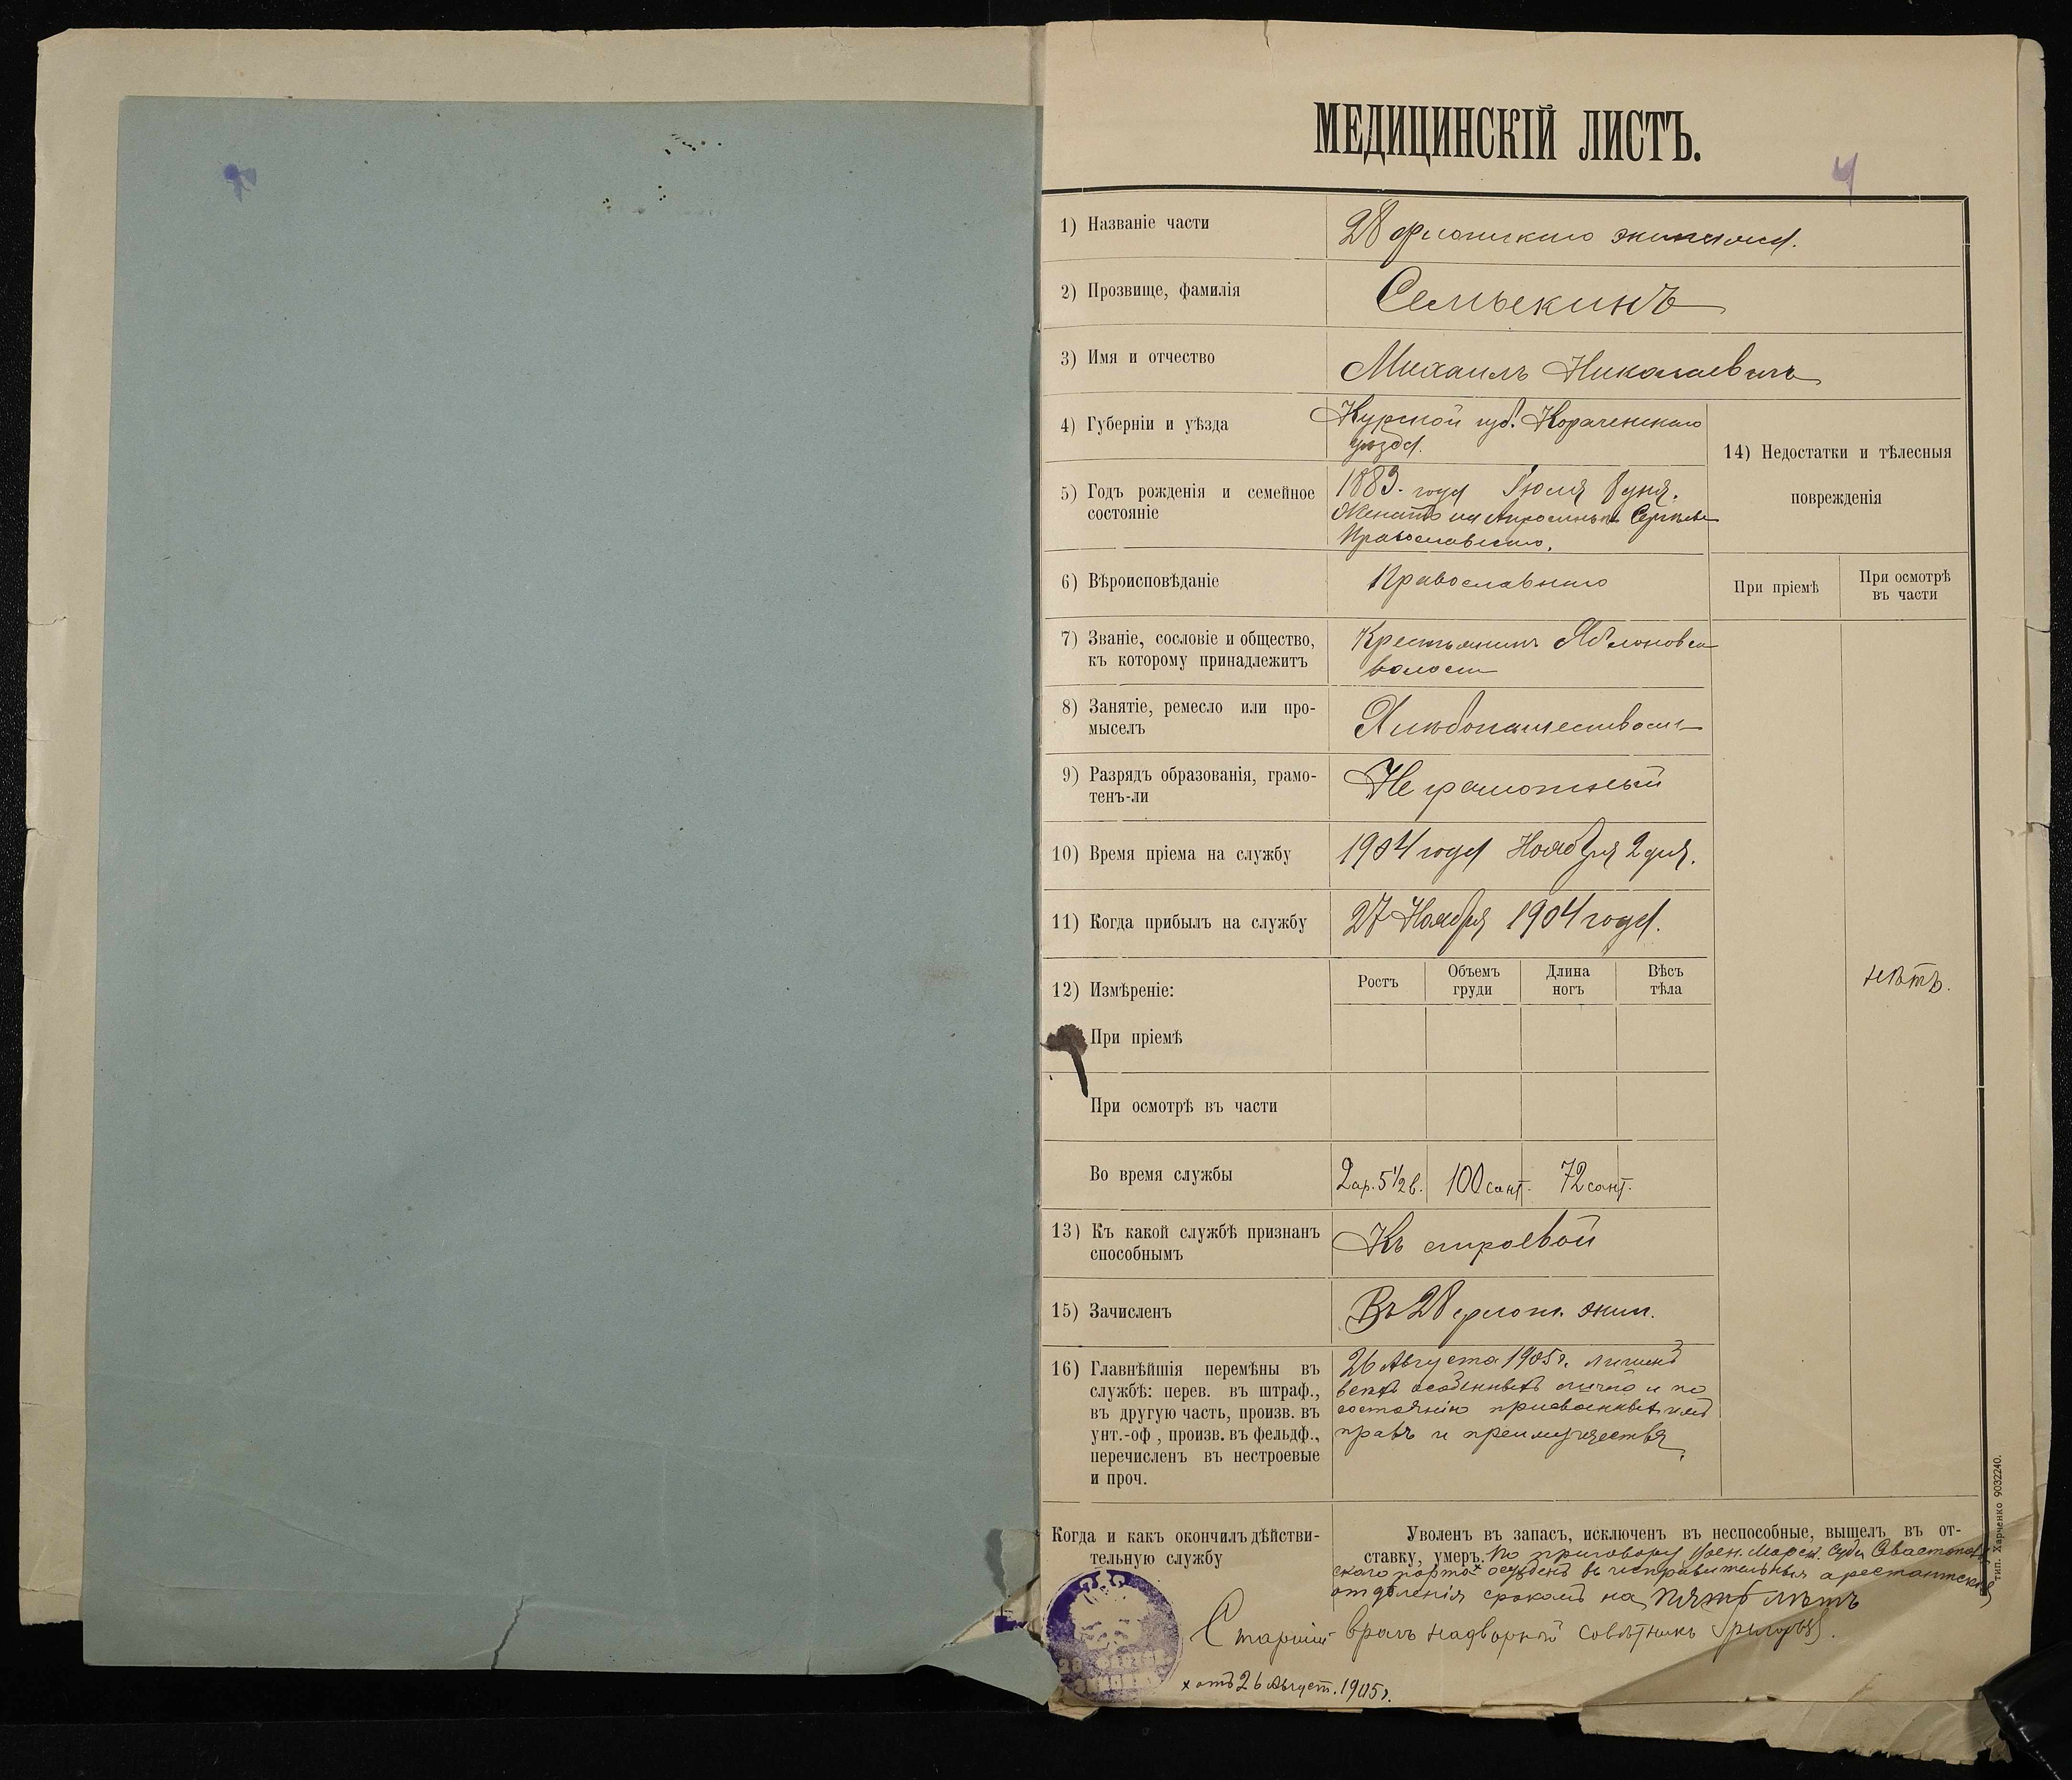 МЕДИЦИНСКІЙ ЛИСТЪ.
4
1) Названіе части
28 флотскаго экипажа.
2) Прозвище, фамилія
Семыкинъ
3) Имя и отчество
Михаилъ Николаевичъ
4) Губерніи и уѣзда
Курской губ. Корачепскаго
уѣзда.
14) Недостатки и тѣлесныя
поврежденія
5) Годъ рожденія и семейное
состояніе
1883. года Іюля 8 дня.
Женатъ на
Православнаго.
6) Вѣроисповѣданіе
Православнаго
При пріемѣ
При осмотрѣ
въ части
7) Званіе, сословіе и общество,
къ которому принадлежитъ
Крестьянинъ Яблоновской
волости
8) Занятіе, ремесло или про-
мыселъ
Хлѣбопашествомъ
9) Разрядъ образованія, грамо-
тенъ-ли
Не грамотный
10) Время пріема на службу
1904 года Ноября 2 дня.
11) Когда прибылъ на службу
27 Ноября 1904 года.
12) Измѣреніе:
Ростъ
Объемъ
груди
Длина
ногъ
Вѣсъ
тѣла
нѣтъ.
При пріемѣ
При осмотрѣ въ части
Во время службы
2 ар. 5 1/2 в. 100 сант. 72 сант.
13) Къ какой службѣ признанъ
способнымъ
Къ строевой
15) Зачисленъ
Въ 28 флот. экип.
16) Главнѣйшія перемѣны въ
службѣ: перев. въ штраф.,
въ другую часть, произв. въ
унт.-оф , произв. въ фельдф.,
перечисленъ въ нестроевые
и проч.
26 Августа 1905 г. лишенъ
всѣхъ особенныхъ лично и по
состоянію присвоенныхъ имъ
правъ и преимуществъ.
Когда и какъ окончилъ дѣйстви-
тельную службу
Уволенъ въ запасъ, исключенъ въ неспособные, вышелъ въ от-
ставку, умеръ. По приговору Воен. Морск. Суда Севастополь
скаго порта х осужденъ въ исправительныя арестантскія
отдѣленія срокомъ на Пять лѣтъ
Старшій врачъ надворный совѣтникъ
х отъ 26 Август. 1905 г.
тип. Харченко 9032240.